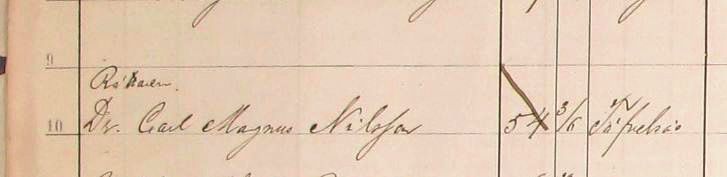 9
10 Dr. Carl Magnus Nilsson 54 3/6 Töfvelsås